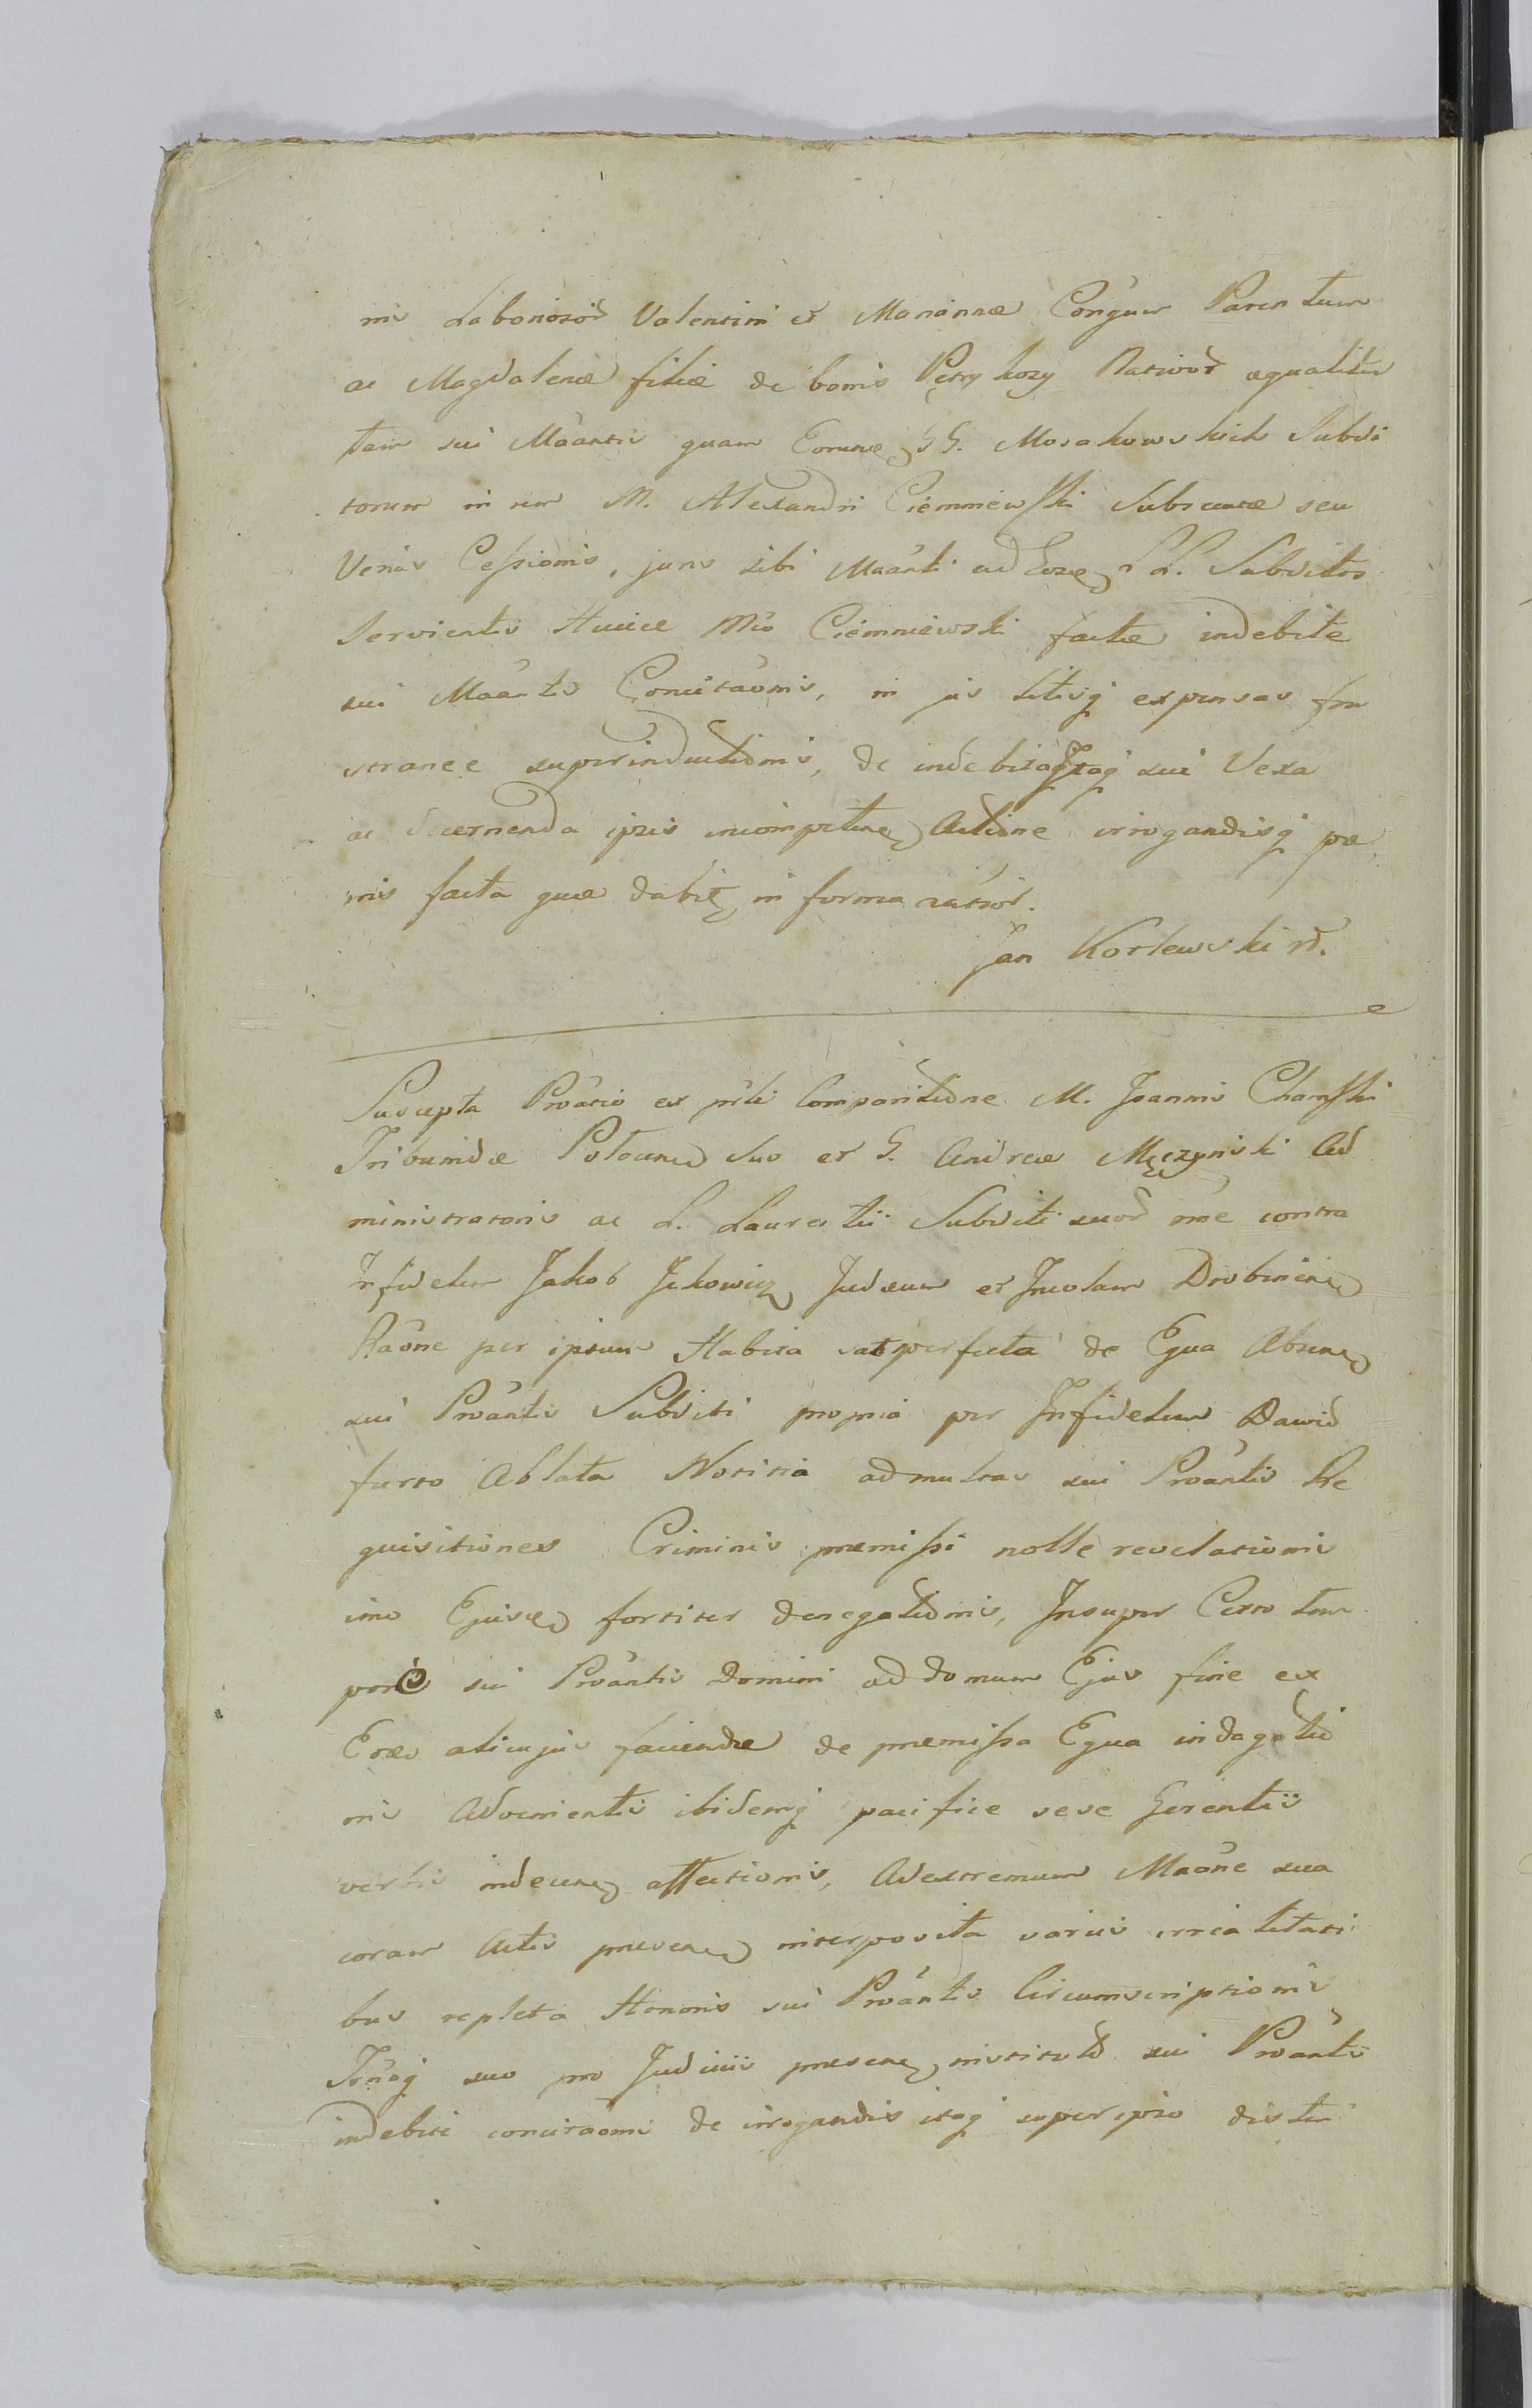 nis Laboriosoꝝ Valentini et Mariannæ Conjgum Parentum
ac Magdalenæ filiæ de bonis Pętrykozy Nativoꝝ æqualiter
tam sui Mãantis quam Eorund GG. Mosakowskich Subdi
torum in rem M. Alexandri Ciemniewski Subsecutæ seu
Verius Cessionis, juris sibi Maãnti ad Eosd LL. Subditos
Servientis Huicce Mco Ciemniewski factæ indebite
sui Maãntis Concitãonis, in jus litisq expensas fru
straneæ superinductionis, de indebita Itaq sui Vexa
ac decernenda ipsis incompeten Actione irrogandisq pæ
nis facta quæ dabit in forma
Jan Kozlewski
Suscepta Proãtio ex prli Comparitione M. Joannis Chamski
Tribunidæ Plocen Suo et G. Andreæ Męczynski Ad
ministratoris ac L. Laurentii Subditi suoꝝ nne contra
Infidelem Jakob Jckowicz Judæum et Incolam Drobinen
Rãone per ipsum Habita satperfecta de Equa Absen
sui Proãntis Subditi propria per Infidelem Dawid
furto Ablata Notitia ad multas sui Proãntis Re
quisitiones Criminis præmissi nolle revelationis
imo Ejusd fortiter denegationis, Insuper Certo tem
pore sui Proãntis Domini ad domum Ejus fine ex
alicujus faciendæ de præmissa Equa indagatio
nis Advenientis ibidemq pacifice sese Gerentis
verbis indecen affectionis, Adextremum Mãone sua
coram Actis præsen interposita variis irrealitati
bus repleta Honoris sui Proãntis Circumscriptionis
suo pro Judicii præsen institut sui Proãntis
indebiti concitãonis de irrogandis itaq super ipso distri